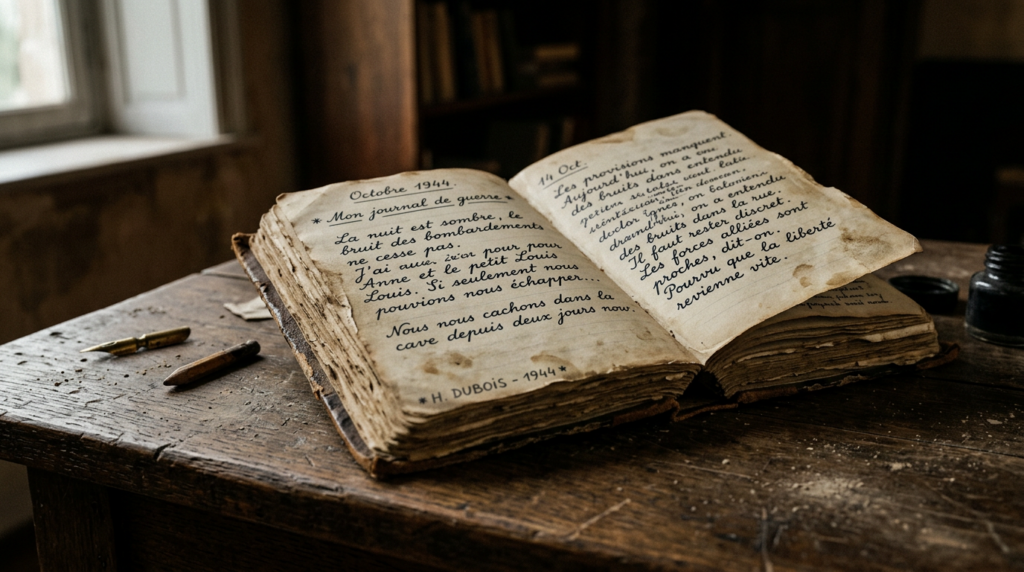 Octobre 1944
* Mon journal de guerre *
La nuit est sombre, le
bruit des bombardements
ne cesse pas.
J'ai pour, pour
Anne et le petit Louis
Louis. Si seulement nous
pouvions nous échapper...
Nous nous cachons dans la
cave depuis deux jours nov.
* H. DUBOIS - 1944 *
14 Oct.
Les provisions manquent.
Aujourd'hui, on a eu
des bruits dans entendu
on a entendu
des bruits dans la rue.
Il faut rester discret.
Les forces alliées sont
proches, dit-on.
Pourvu que la liberté
revienne vite.